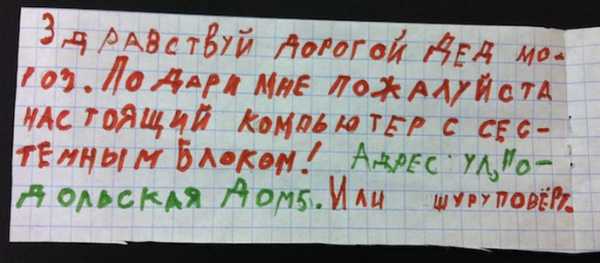 Здравствуй дорогой Дед мо-
роз. Подари мне пожалуйста
настоящий компьютер с сес-
темным блоком! Адрес ул, По-
дольская дом5. Или шуруповёрт.